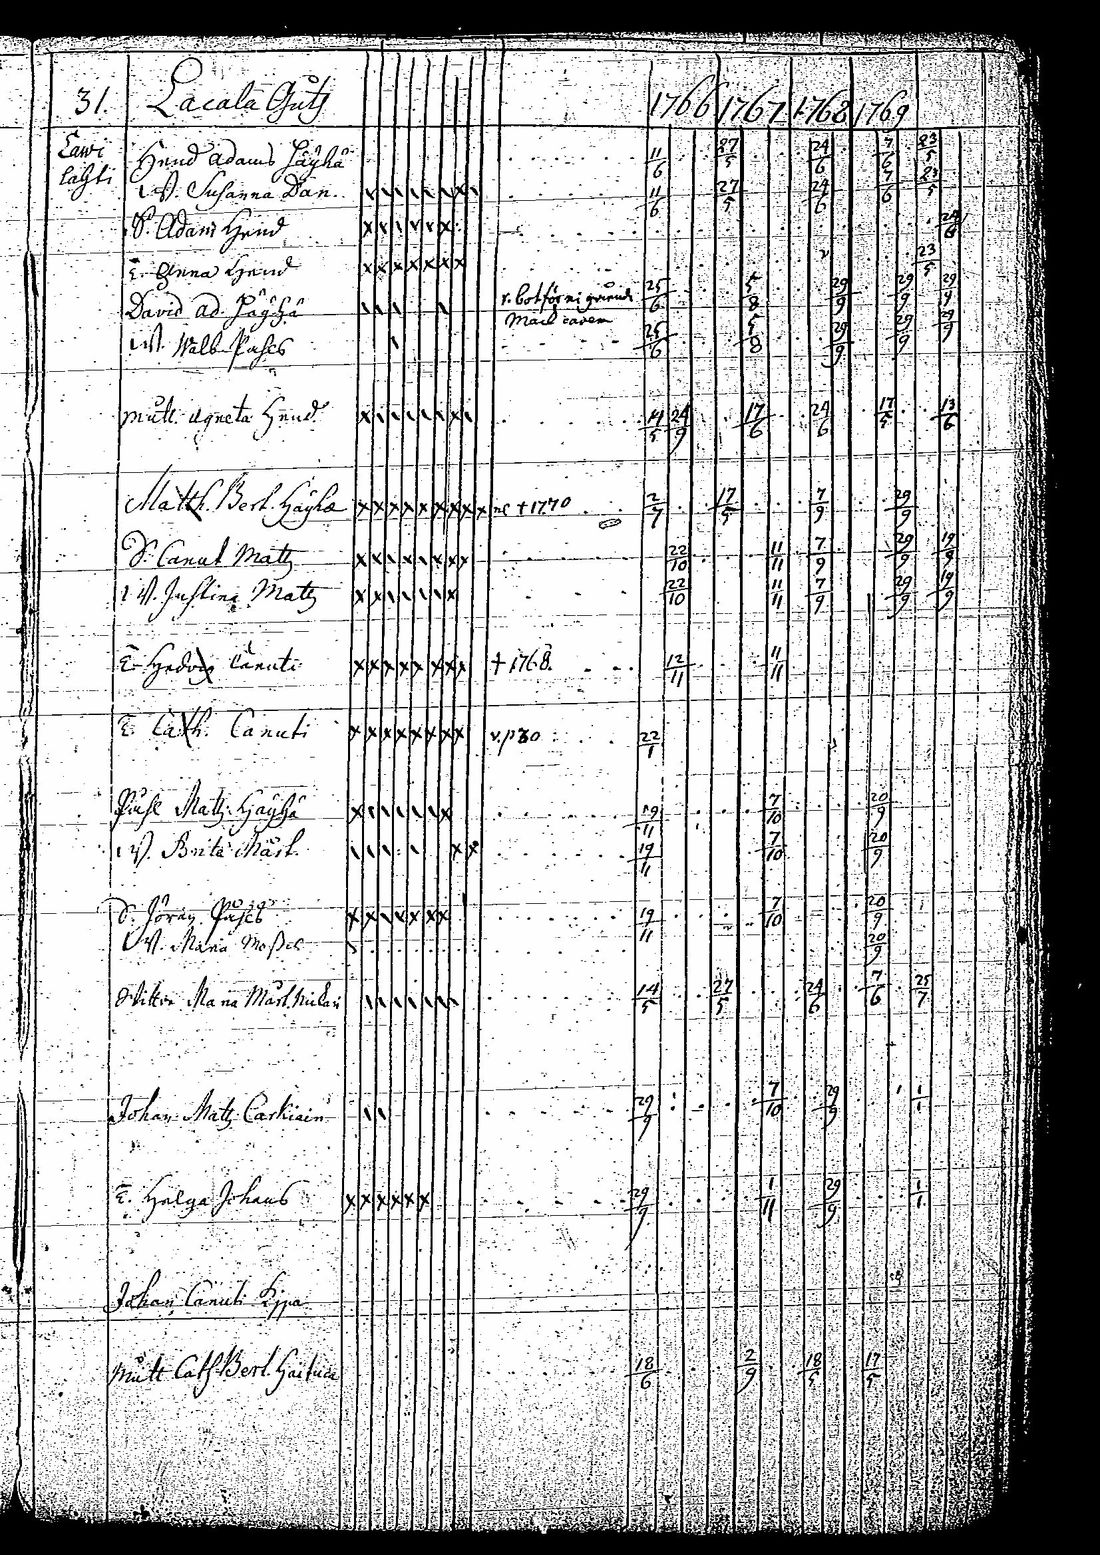 31. Lacala Gutz 1766 1767 1768 1769
Lawi
lahti
Hend Adams Häyhä 11/6 27/5 24/6 7/6 23/5
W. Susanna Dan. 11/6 27/5 24/6 7/6 23/5
S. Adam Hend 24/6
E. Anna Hend 23/5
David Ad. Häyhä 25/6 5/8 29/9 29/9 29/9
W. Walb. Påhls 25/6 5/8 29/9 29/9 29/9
mutt. Agneta Hend. 14/5 24/9 17/6 24/6 17/5 13/6
Matth. Bert. Häyhä † 1770 2/7 17/5 7/9 29/9
S. Canut Matz 22/10 11/11 7/9 29/9 19/9
W. Justina Matz 22/10 11/11 7/9 29/9 19/9
E. Hedvig Canuti † 1768. 12/11 11/11
E. Cath. Canuti v. p 30 22/1
Påhl Matz. Häyhä 19/11 7/10 20/9
W. Brita Mårt. 19/11 7/10 20/9
S. Jöran Påhls 19/11 7/10 20/9
W. Maria 20/9
Maria Mårt. 14/5 27/5 24/6 7/6 25/7
Johan Matz Carkiain 29/9 7/10 29/9 1/1
E. Helga Johans 29/9 1/11 29/9 1/1
Johan Canuti
Mutt Cath Bert. 18/6 2/9 18/5 17/5